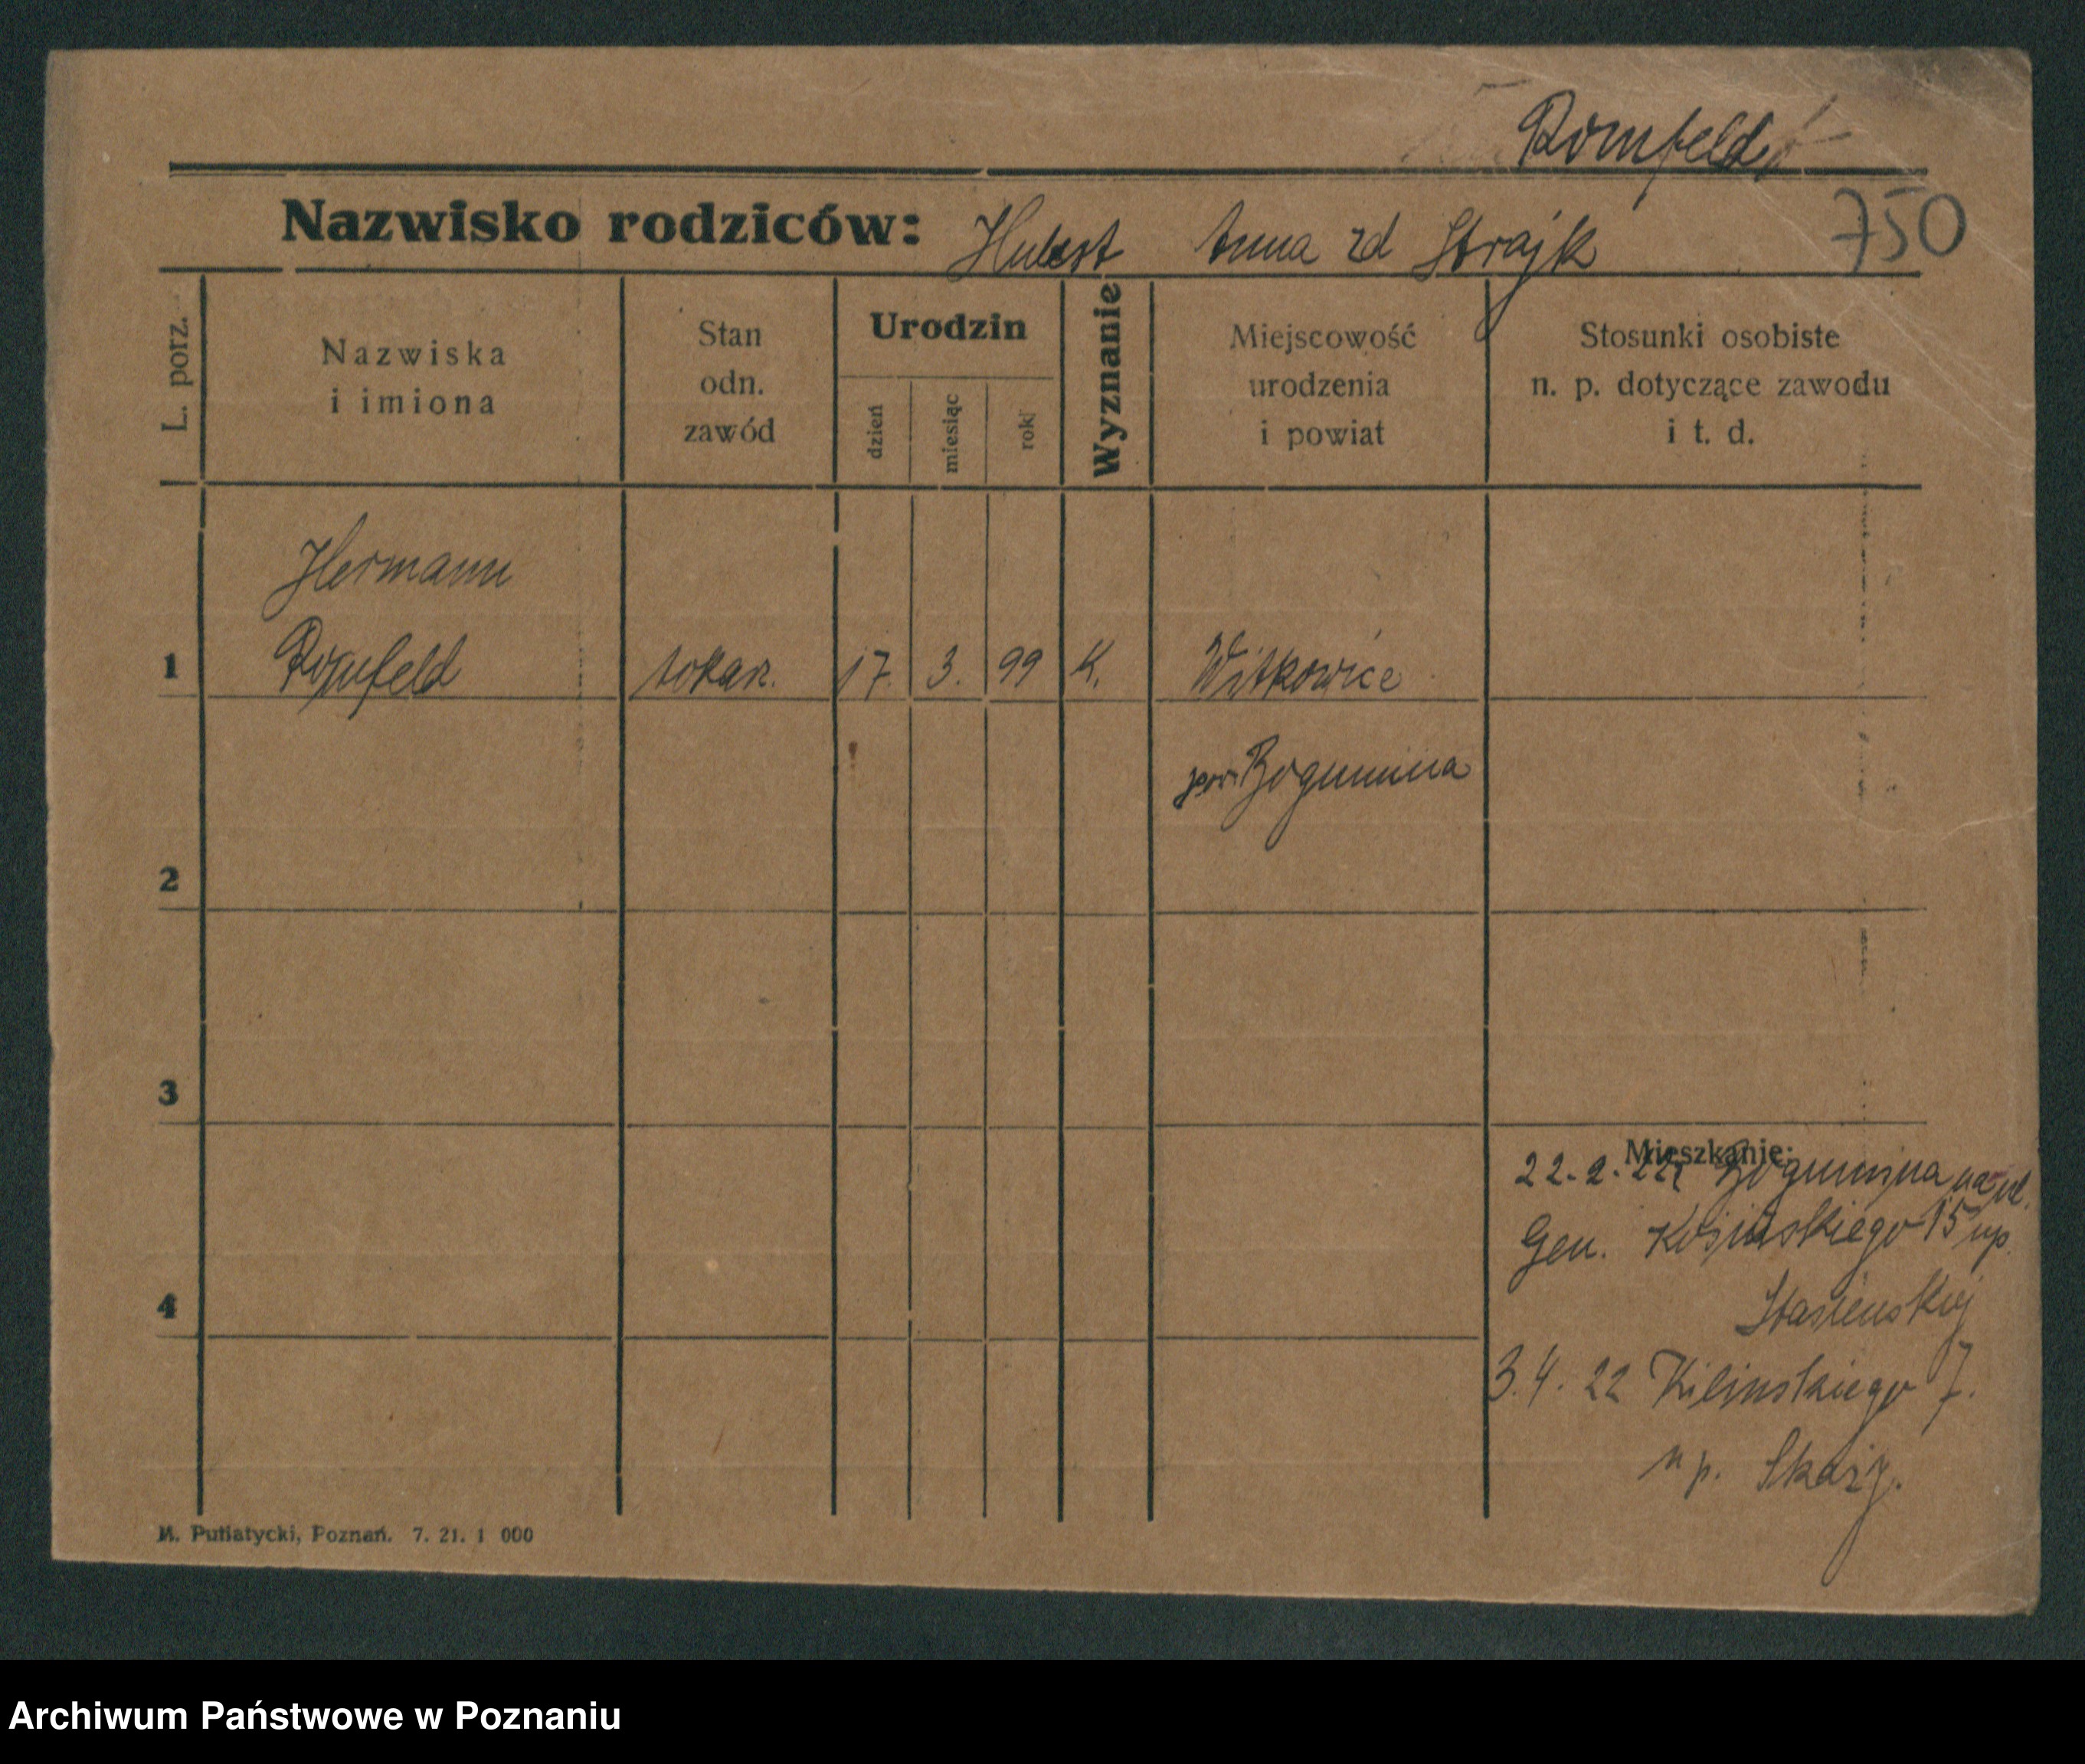 Romfeld
Nazwisko rodziców: Hubert Anna zd Strajk
750
L. porz.
Nazwiska
i imiona
Stan
odn.
zawód
Urodzin
dzień
miesiąc
rok
Wyznanie
Miejscowość
urodzenia
i powiat
Stosunki osobiste
n. p. dotyczące zawodu
i t. d.
Hermann
1 Romfeld tokarz. 17. 3. 99 K. Witkowice
pow. Bogumina
2
3
Mieszkanie:
22.2.22 z Bogumina na ul.
Gen. Kosińskiego 15 np.
4
Stasieńskiej
3.4.22 Kilinskiego 7.
np. Skarz.
M. Putiatycki, Poznań. 7. 21. 1 000
Archiwum Państwowe w Poznaniu